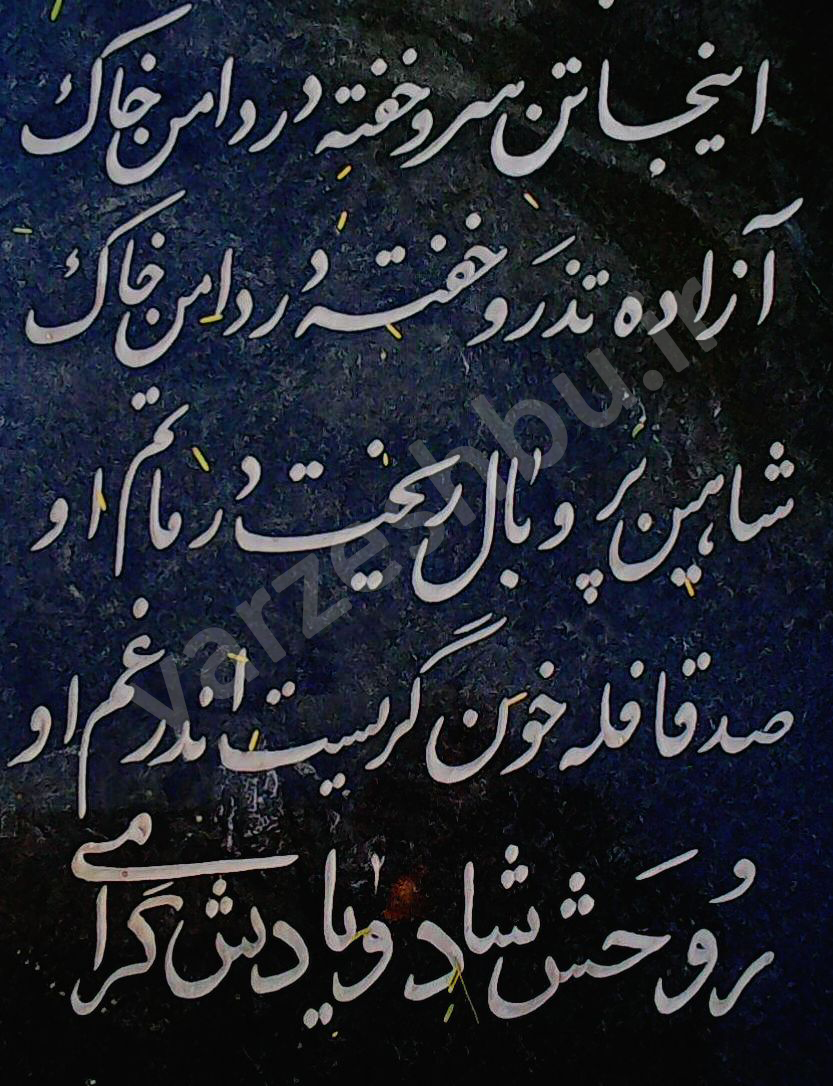 اینجا تن سرو خفته در دامن خاک
آزاده تذرَو خفته در دامن خاک
شاهین پر و بال ریخت در ماتم او
صد قافله خون گریست اندر غم او
رُوحَش شاد و یادش گرامی
varzeshbu.ir